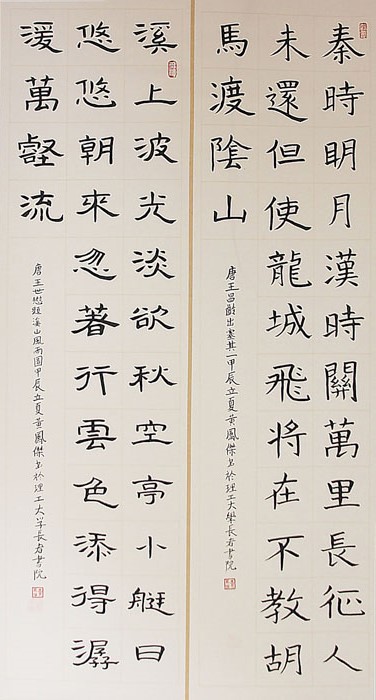 秦時眀月漢時關萬里長征人
未還但使龍城飛將在不教胡
馬渡陰山
唐王昌齡出塞其一甲辰立夏黃鳳傑书於理工大學長者書院
溪上波光淡欲秋空亭小艇日
悠悠朝來忽著行雲色添得潺
湲萬壑流
唐王世懋題溪山風雨圖甲辰立夏黃鳳傑书於理工大学長者書院